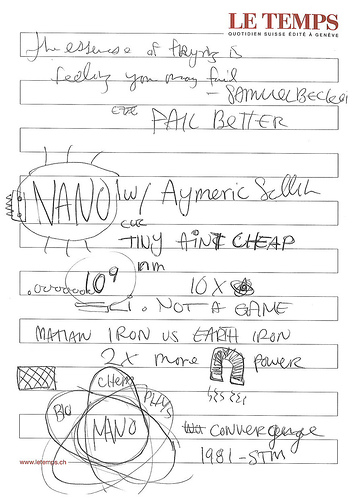 LE TEMPS
QUOTIDIEN SUISSE ÉDITÉ À GENÈVE
The essence of trying is
feeling you may fail
- SAMUEL
FAIL BETTER
NANO w/ Aymeric
TINY AIN'T CHEAP
nm
.000000001 10⁹ 10X
NOT A GAME
MARTIAN IRON VS EARTH IRON
2X more power
CHEM
BIO PHYS
NANO convergence
1981-STM
www.letemps.ch